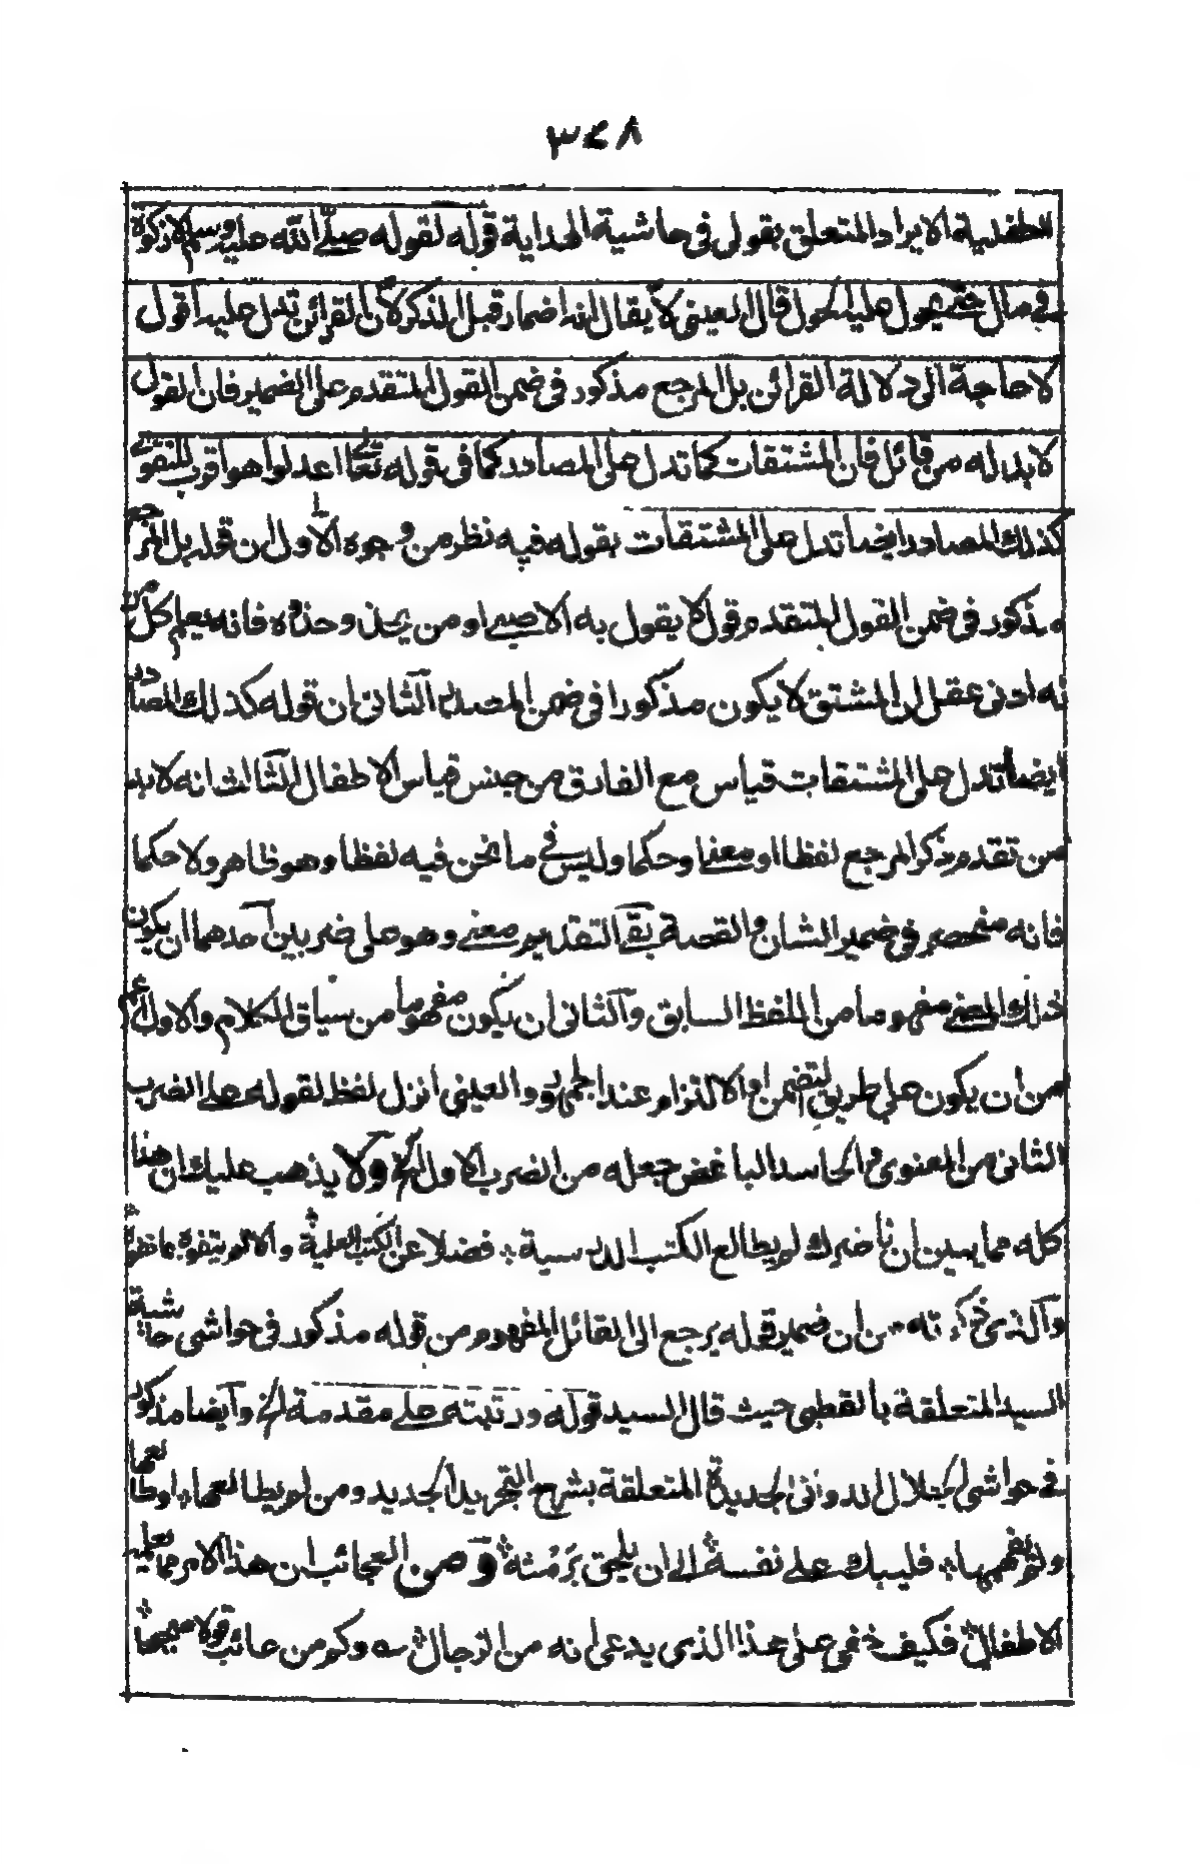 ٣٤٨
الطفلية الايراد المتعلق بقولى فى حاشية الهداية قوله لقوله صلى الله عليه وسلم لا زكوة
فى مال حتى يحول عليه الحول قال العينى لا يقال انه اضمار قبل الذكر لان القرائن تدل عليه اقول
لا حاجة الى دلالة القرائن بل المرجع مذكور فى ضمن القول المتقدم على الضمير فان القول
لا بد له من قائل فان المشتقات كما تدل على المصادر كما فى قوله تعالى اعدلوا هو اقرب للتقوى
كذلك المصادر ايضا تدل على المشتقات بقوله فيه نظر من وجوه الاول ان قوله بل المرجع
مذكور فى ضمن القول المتقدم قول لا يقول به الا صبى او من يحذو حذوه فانه يعلم كل من
له ادنى عقل ان المشتق لا يكون مذكورا فى ضمن المصدر الثانى ان قوله كذلك المصادر
ايضا تدل على المشتقات قياس مع الفارق من جنس قياس الاطفال الثالث انه لا بد
من تقدم ذكر المرجع لفظا او معنى او حكما وليس فى ما نحن فيه لفظا وهو ظاهر ولا حكما
فانه منحصر فى ضمير الشان والقصة بقى التقديم معنى وهو على ضربين احدهما ان يكون
ذلك المعنى مفهوما من اللفظ السابق والثانى ان يكون مفهوما من سياق الكلام والاول اعم
من ان يكون على طريق التضمن او الالتزام عند الجمهور والعينى انزل لفظ لقوله على الضرب
الثانى من المعنوى والحاسد الباغض جعله من الضرب الاول الخ ولا يذهب عليك ان هذا
كله مما يبين ان ناصرك لم يطالع الكتب الدرسية فضلا عن الكتب العلمية والا لم يتفوه بما تفوه
والذى ذكرته من ان ضمير قوله يرجع الى القائل المفهوم من قوله مذكور فى حواشى حاشية
السيد المتعلقة بالقطبى حيث قال السيد قوله ورتبته على مقدمة الخ وايضا مذكور
فى حواشى الجلال الدوانى الجديدة المتعلقة بشرح التجريد الجديد ومن لم يطالعهما او طالعهما
ولم يفهمها فليبك على نفسه الى ان يلحق برمسه ومن العجائب ان هذا الامر مما يعلمه
الاطفال فكيف خفى على هذا الذى يدعى انه من الرجال وكم من عائب قولا صحيحا